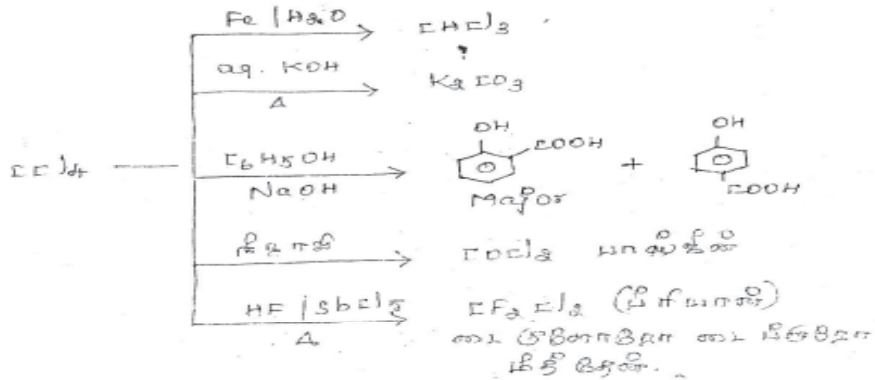 Fe / H₂O
CHCl₃
aq. KOH
Δ
K₂CO₃
CCl₄
C₆H₅OH
NaOH
OH
COOH
Major
+
OH
COOH
நீராவி
COCl₂ பாஸ்ஜீன்
HF / SbCl₅
Δ
CF₂Cl₂ (பிரியான்)
டை குளோரோ டை புளுரோ
மீத்தேன்.